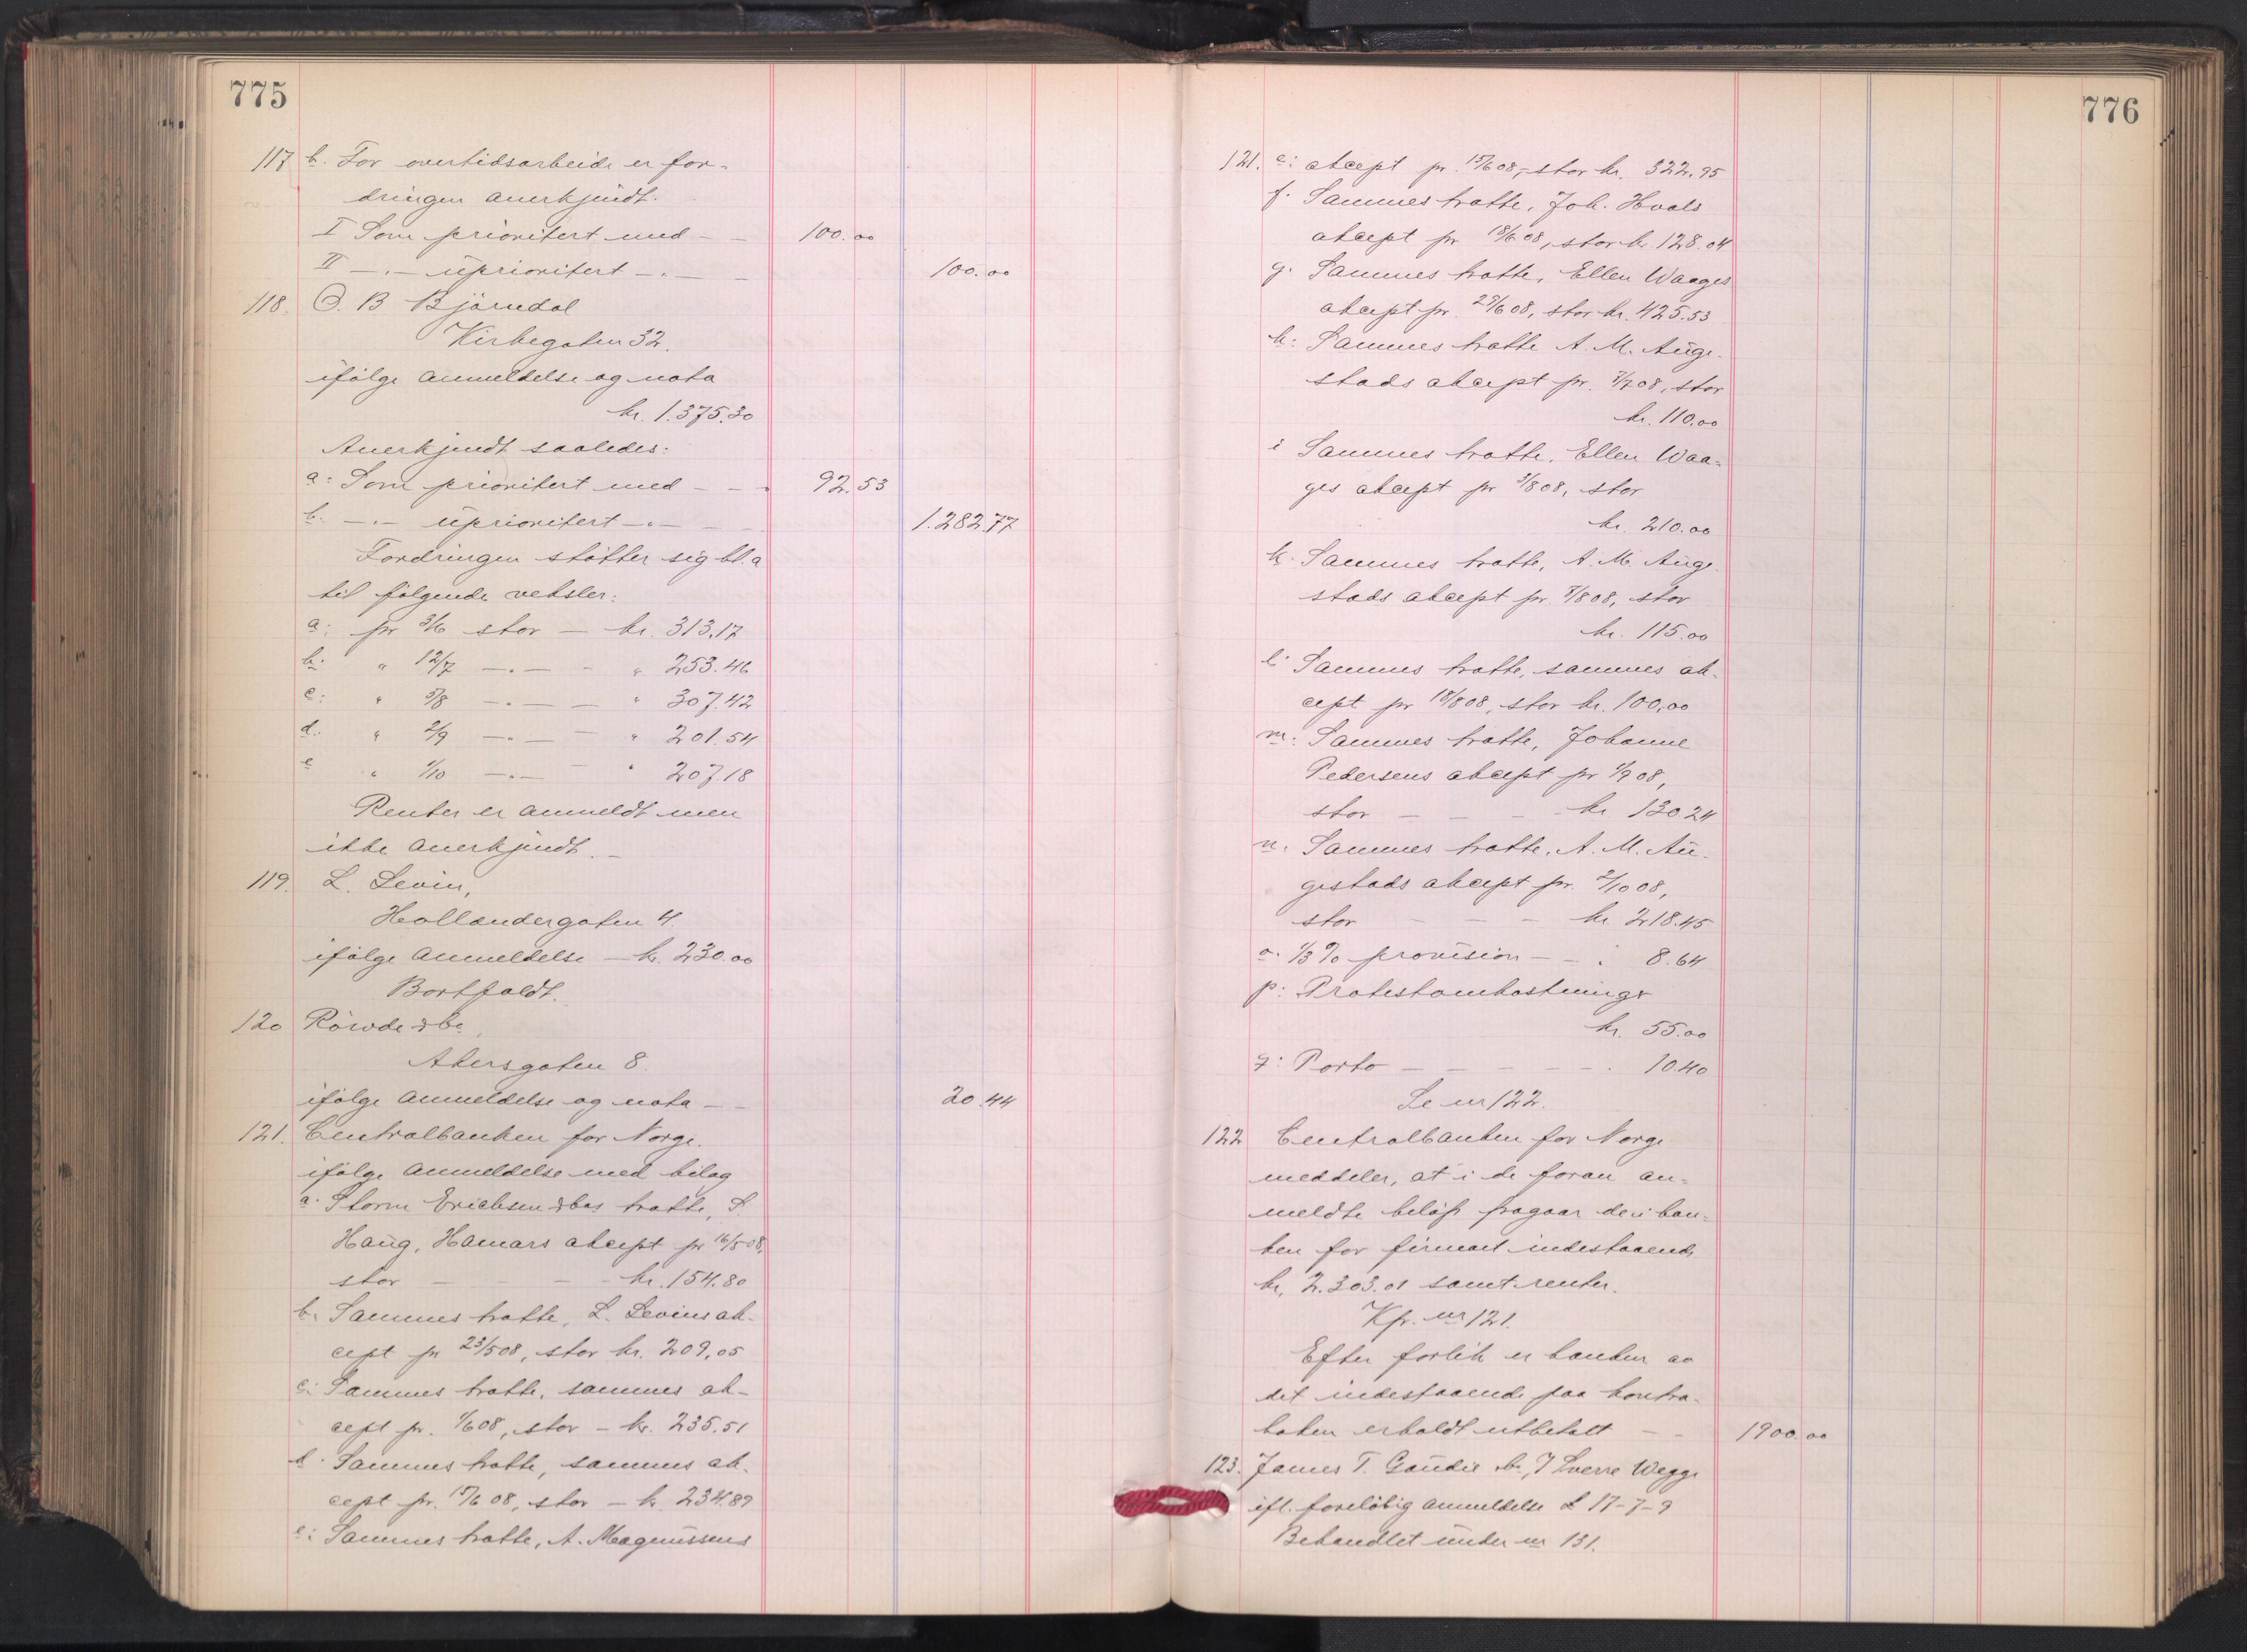 775
117 b. For overtidsarbeide er for-
dringen anerkjendt.
I Som prioritert med - - 100.00
II -"- uprioritert -"- - 100.00
118. O. B Bjørndal
Kirkegaten 32.
ifølge anmeldelse og nota
kr. 1.375.30
Anerkjendt saaledes:
a: Som prioritert med - - - 92.53
b. -"- uprioritert -"- - - 1.282.77
Fordringen støtter sig bl.a
til følgende veksler:
a: pr 3/6 stor - kr. 313.17
b: " 12/7 -"- - " 253.46
c: " 5/8 -"- - " 307.42
d: " 2/9 -"- - " 201.54
e " 1/10 -"- - " 207.18
Renter er anmeldt men
ikke anerkjendt. -
119. L. Levin,
Hollændergaten 4.
ifølge anmeldelse - kr. 230.00
Bortfaldt.
120 &co
Akersgaten 8.
ifølge anmeldelse og nota - - 20.44
121. Centralbanken for Norge.
ifølge anmeldelse med bilag
a. Storm Erichsen &cos tratte, S.
Haug, Hamars akcept pr 16/5 08,
stor - - - - kr. 154.80
b. Sammes tratte, L. Levins ak-
cept pr 23/5 08, stor kr. 209.05
c: Sammes tratte, sammes ak-
cept pr. 1/6 08, stor - kr. 235.51
d. Sammes tratte, sammes ak-
cept pr. 15/6 08, stor - kr. 234.89
e: Sammes tratte, A. Magnussens
776
121. e: akcept pr. 15/6 08, - stor kr. 322.95
f. Sammes tratte, Joh. Hvals
akcept pr 18/6 08, stor kr. 128.04
g. Sammes tratte, Ellen Waages
akcept pr. 27/6 08, stor kr. 425.53
h: Sammes tratte A. M. Auge-
stads akcept pr. 7/7 08, stor
kr. 110.00
i Sammes tratte, Ellen Waa-
ges akcept pr 3/8 08, stor
kr. 210.00
k. Sammes tratte, A. M. Auge-
stads akcept pr. 7/8 08, stor
kr. 115.00
l: Sammes tratte, sammes ak-
cept pr 18/8 08, stor kr. 100.00
m: Sammes tratte, Johanne
Pedersens akcept pr 1/9 08,
stor - - - - kr 130.24
n. Sammes tratte, A. M. Au-
gestads akcept pr. 2/10 08,
stor - - - kr 218.45
o. 1/3 % provision - - " 8.64
p: Protestomkostninger
kr. 55.00
q: Porto - - - - - " 10.40
Se nr 122.
122 Centralbanken for Norge
meddeler, at i de foran an-
meldte beløp fragaar de i ban-
ken for firmaet indestaaende
kr. 2.303.01 samt renter.
Kfr. nr 121.
Efter forlik er banken av
det indestaaende paa kontra-
boken erholdt utbetalt - - 1900.00
123. James T. Gaudie &co, J Sverre Wegge
ifl. foreløbig anmeldelse £ 17-7-9
Behandlet under nr 131.